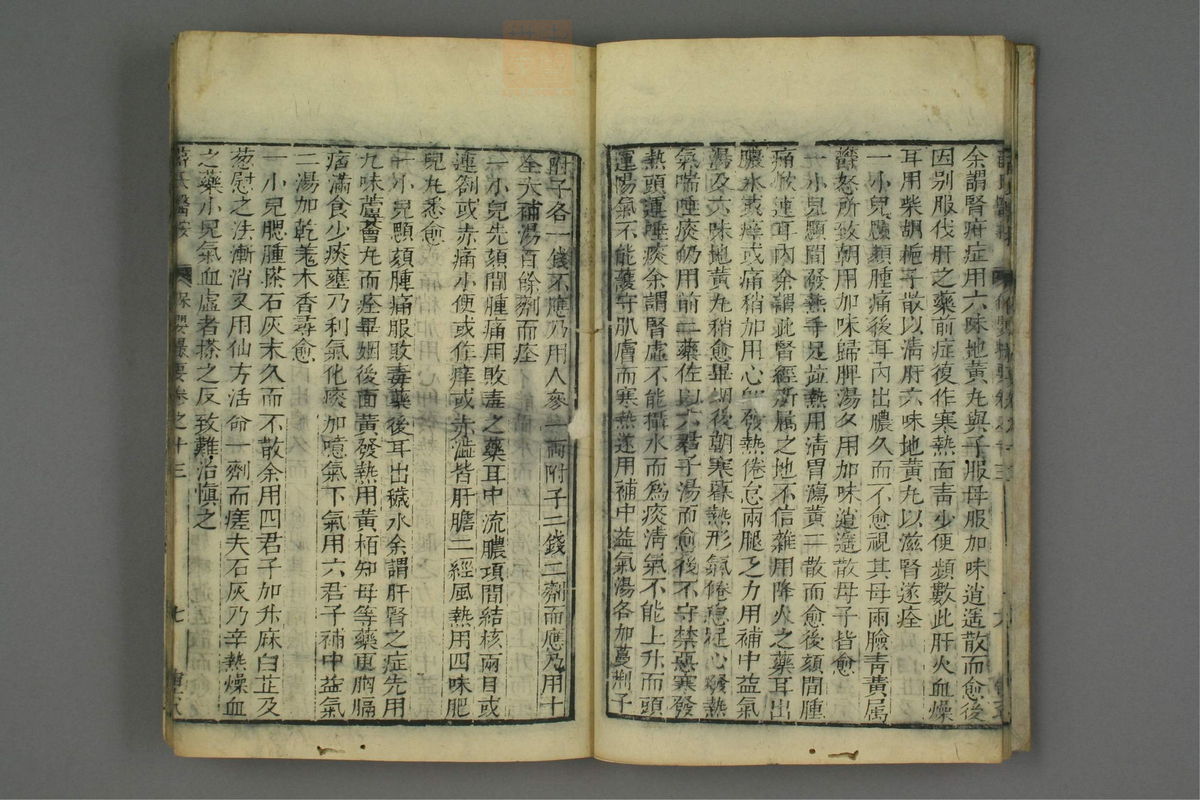 余謂腎疳症用六味地黃丸與子服母服加味逍遙散而愈後
因别服伐肝之藥前症復作寒熱面靑少便頻數此肝火血燥
耳用柴胡梔子散以淸肝六味地黃丸以滋腎遂痊
一小兒顋頰腫痛後耳內出膿久而不愈視其母兩臉青黃属
鬱怒所致朝用加味歸脾湯夕用加味逍遙散母子皆愈
一小兒顋間發熱手足並熱用淸胃瀉黃二散而愈後頦間腫
痛焮連耳內余謂此腎經所属之地不信雜用降火之藥耳出
膿水或痒或痛稍加用心即發熱倦怠兩腿乏力用補中益氣
湯及六味地黃丸稍愈畢姻後朝寒暮熱形氣倦怠足心發熱
氣喘唾痰仍用前二藥佐以六君子湯而愈後不守禁惡寒發
熱頭運唾痰余謂腎虛不能攝水而爲痰淸氣不能上升而頭
運陽氣不能護守肌膚而寒熱遂用補中益氣湯各加蔓荆子
附子各一錢不應乃用人參一兩附子二錢二劑而應乃用十
全大補湯百餘劑而痊
一小兒先頦間腫痛用敗毒之藥耳中流膿項間結核兩目或
連劄或赤痛小便或作痒或赤澁皆肝膽二經風熱用四味肥
兒丸悉愈
一小兒顋頦腫痛服敗毒藥後耳出穢水余謂肝腎之症先用
九味蘆薈丸而痊畢姻後面黃發熱用黃栢知母等藥更胸膈
痞滿食少痰壅乃利氣化痰加噫氣下氣用六君子補中益氣
二湯加乾羗木香尋愈
一小兒腮腫搽石灰末久而不散余用四君子加升麻白芷及
葱慰之法漸消又用仙方活命一劑而瘥夫石灰乃辛熱燥血
之藥小兒氣血虛者搽之反致難治愼之
薛氏醫按
保嬰撮要卷之十三
七